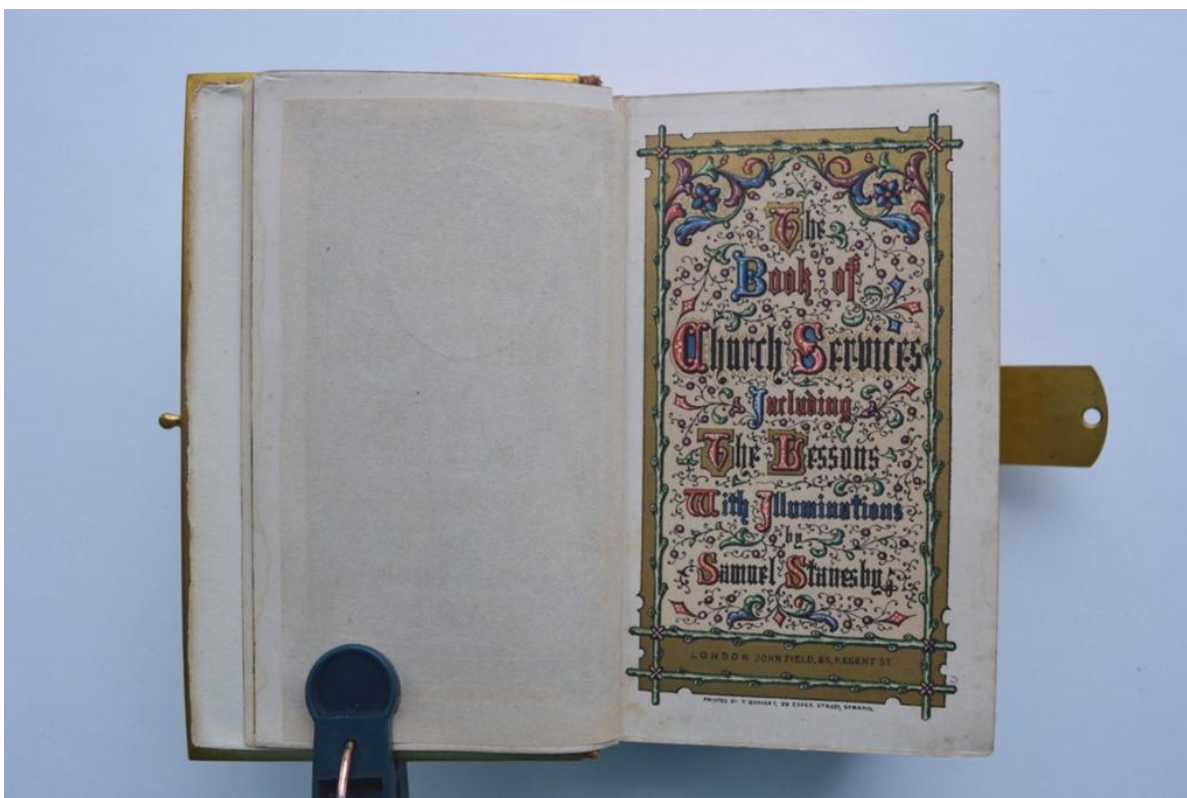 The
Book of
Church Services
Including
The Lessons
With Illuminations
by
Samuel Stanesby
LONDON JOHN FIELD, 65, REGENT ST.
PRINTED BY T. ESSEX STREET, STRAND.